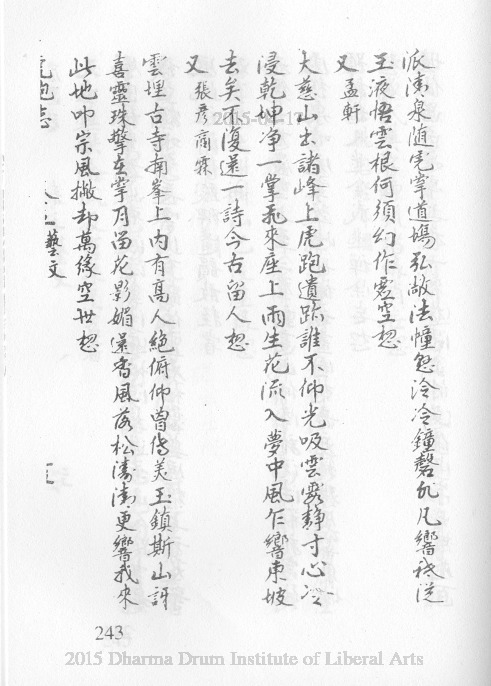 派清泉随虎掌道場弘敞法幢忽泠泠鐘磬非凡響祗從
玉液悟雲根何須幻作虛空想
又 孟軒
大慈山出諸峰上虎跑遺跡誰不仰光吸雲霞靜寸心冷
浸乾坤净一掌飛來座上雨生花流入夢中風乍響東坡
去矣不復還一詩今古留人想
又 張彥商霖
雲埋古寺南峯上內有高人絕俯仰曾傳美玉鎮斯山訝
喜靈珠擎在掌月留花影媚還香風落松濤清更響我來
此地叩宗風撇却萬緣空世想
虎跑志
藝文
2015-04-17
243
2015 Dharma Drum Institute of Liberal Arts